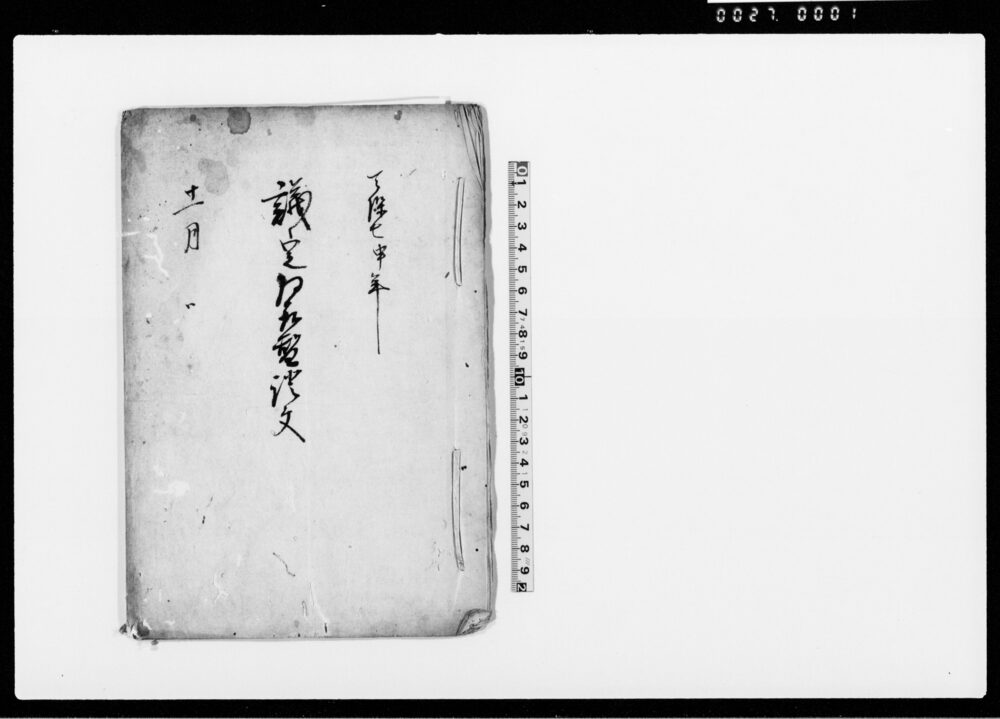 0027. 0001
天保七申年
議定取極證文
十一月
0 1 2 3 4 5 6 7 8 9 10 1 2 3 4 5 6 7 8 9 2